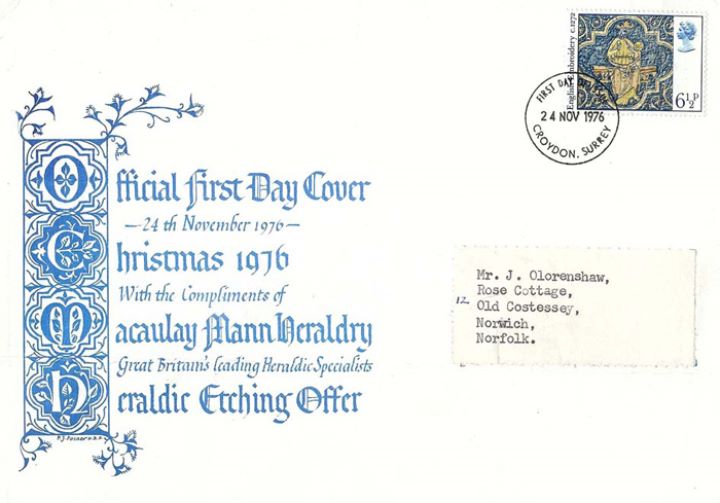 English Embroidery c.1272
6½P
FIRST DAY OF ISSUE
24 NOV 1976
CROYDON, SURREY
Official First Day Cover
—24th November 1976—
Christmas 1976
With the Compliments of
Macaulay Mann Heraldry
Great Britain's leading Heraldic Specialists
Heraldic Etching Offer
12
Mr. J. Olorenshaw,
Rose Cottage,
Old Costessey,
Norwich,
Norfolk.